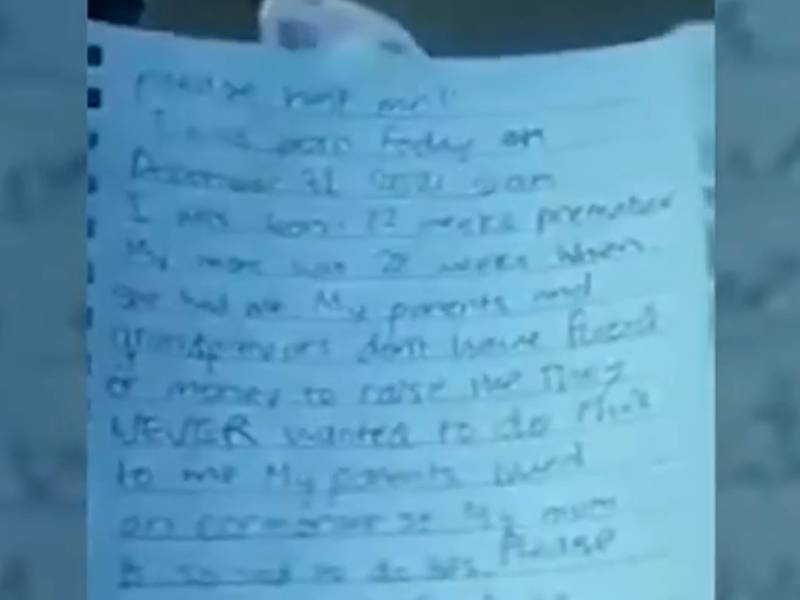 Please help me!
I was born today on
December 31 2021 5 am
I was born 12 weeks premature
My mom was 28 weeks when
she had me My parents and
grandparents dont have food
or money to raise me They
NEVER wanted to do this
to me My parents
My mom
is so sad to do this Please